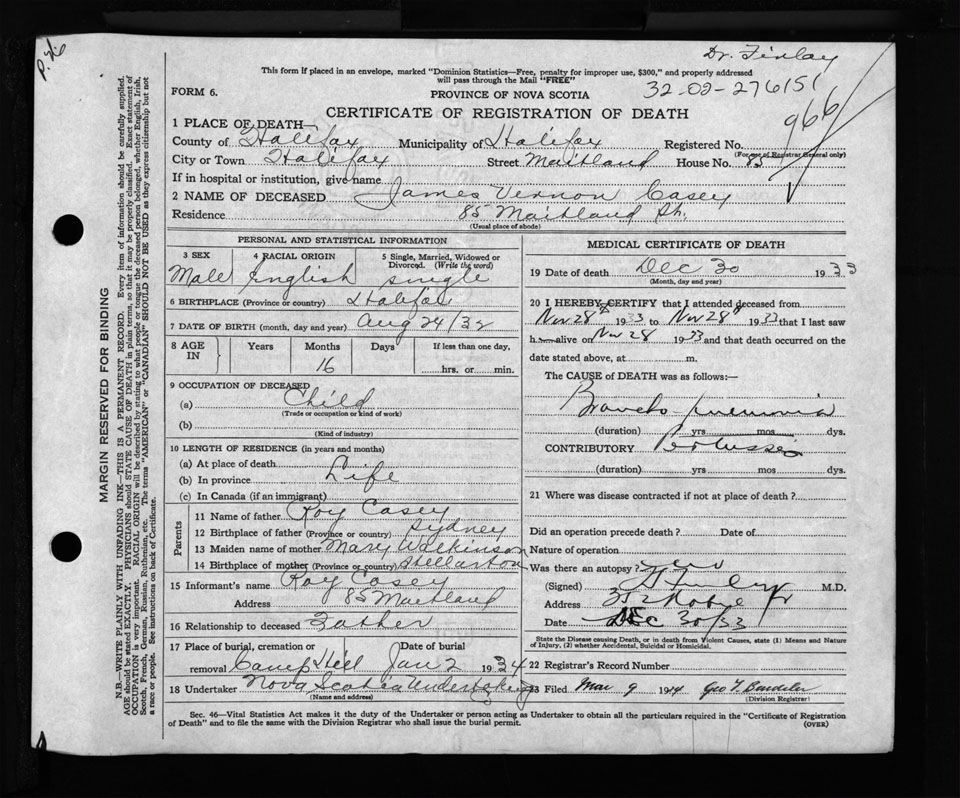 P.76
Dr. Finlay
This form if placed in an envelope, marked "Dominion Statistics—Free, penalty for improper use, $300," and properly addressed
will pass through the Mail "FREE"
32-02-276151
FORM 6.
PROVINCE OF NOVA SCOTIA
966
CERTIFICATE OF REGISTRATION OF DEATH
1 PLACE OF DEATH—
County of Halifax Municipality of Halifax Registered No.
(For use of Registrar General only)
City or Town Halifax Street Maitland House No. 85
If in hospital or institution, give name
2 NAME OF DECEASED James Vernon Casey
Residence 85 Maitland St.
(Usual place of abode)
PERSONAL AND STATISTICAL INFORMATION
3 SEX 4 RACIAL ORIGIN 5 Single, Married, Widowed or Divorced. (Write the word)
Male English single
6 BIRTHPLACE (Province or country) Halifax
7 DATE OF BIRTH (month, day and year) Aug 24/32
8 AGE IN Years Months Days If less than one day,
16 hrs. or min.
9 OCCUPATION OF DECEASED
(a) Child
(Trade or occupation or kind of work)
(b)
(Kind of industry)
10 LENGTH OF RESIDENCE (in years and months)
(a) At place of death
(b) In province Life
(c) In Canada (if an immigrant)
Parents
11 Name of father Roy Casey
12 Birthplace of father (Province or country) Sydney
13 Maiden name of mother Mary Wilkinson
14 Birthplace of mother (Province or country) Stellarton
15 Informant's name Roy Casey
Address 85 Maitland
16 Relationship to deceased Father
17 Place of burial, cremation or removal Camp Hill Date of burial Jan 2 1934
18 Undertaker Nova Scotia Undertaking
(Name and address)
MEDICAL CERTIFICATE OF DEATH
19 Date of death Dec 30 1933
(Month, day and year)
20 I HEREBY CERTIFY that I attended deceased from
Nov 28th 1933 to Nov 28th 1933 that I last saw
h alive on Nov 28 1933 and that death occurred on the
date stated above, at m.
The CAUSE of DEATH was as follows:—
Broncho-pneumonia
(duration) yrs mos dys.
CONTRIBUTORY Pertussis
(duration) yrs mos dys.
21 Where was disease contracted if not at place of death?
Did an operation precede death? Date of
Nature of operation
Was there an autopsy?
(Signed) M.D.
Address
Date Dec 30/33
State the Disease causing Death, or in death from Violent Causes, state (1) Means and Nature
of Injury, (2) whether Accidental, Suicidal or Homicidal.
22 Registrar's Record Number
23 Filed Mar 9 1934 Geo
(Division Registrar)
Sec. 46—Vital Statistics Act makes it the duty of the Undertaker or person acting as Undertaker to obtain all the particulars required in the "Certificate of Registration
of Death" and to file the same with the Division Registrar who shall issue the burial permit. (OVER)
MARGIN RESERVED FOR BINDING
N.B.—WRITE PLAINLY WITH UNFADING INK—THIS IS A PERMANENT RECORD. Every item of information should be carefully supplied.
AGE should be stated EXACTLY. PHYSICIANS should STATE CAUSE OF DEATH in plain terms, so that it may be properly classified. Exact statement of
OCCUPATION is very important. RACIAL ORIGIN will be described by stating to what people or tongue the deceased person belonged, whether English, Irish,
Scotch, French, German, Russian, Ruthenian, etc. The terms "AMERICAN" or "CANADIAN" SHOULD NOT BE USED as they express citizenship but not
a race or people. See instructions on back of Certificate.